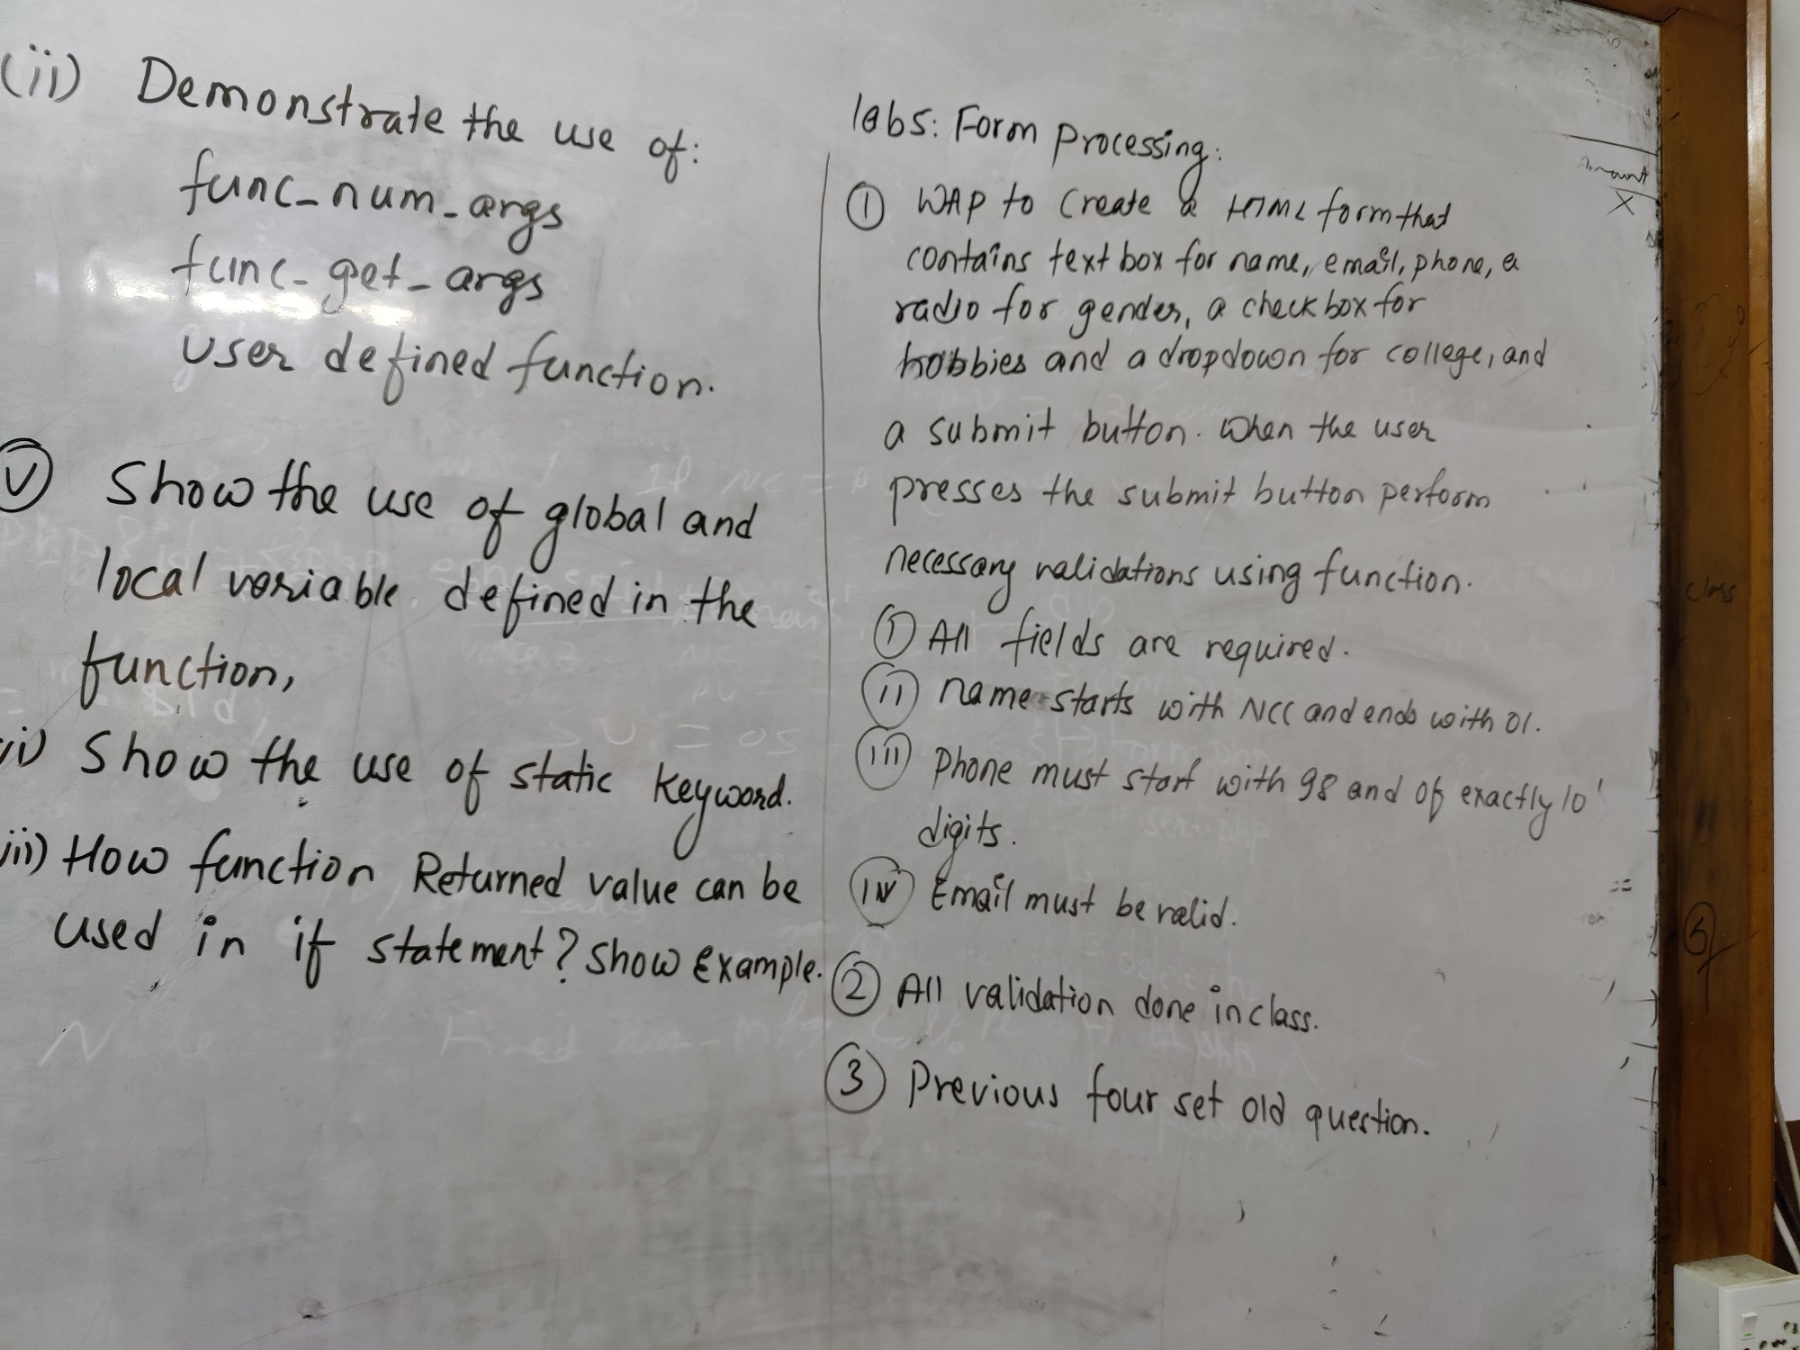 (ii) Demonstrate the use of:
func_num_args
func_get_args
user defined function.
v Show the use of global and
local variable defined in the
function,
vi) Show the use of static keyword.
vii) How function Returned value can be
used in if statement? Show Example.
lab5: Form Processing:
① WAP to Create a HTML form that
contains text box for name, email, phone, a
radio for gender, a check box for
hobbies and a dropdown for college, and
a submit button. When the user
presses the submit button perform
necessary validations using function.
i All fields are required.
ii name starts with NCC and ends with 01.
iii Phone must start with 98 and of exactly 10
digits.
iv Email must be valid.
② All validation done in class.
③ Previous four set old question.
class